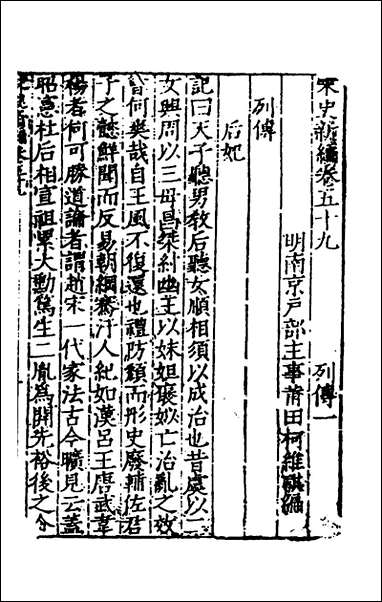 宋史新編卷五十九 列傳一
明南京戸部主事莆田柯維騏編
列傳
后妃
記曰天子聽男教后聽女順相須以成治也昔虞以二
女興周以三母昌桀紂幽王以妺妲褒姒亡治亂之效
曾何爽哉自王風不復還也禮防頽而彤史廢輔佐君
子之懿鮮聞而反易朝綱瀆汙人紀如漢呂王唐武韋
楊者何可勝道論者謂趙宋一代家法古今曠見云蓋
昭憲杜后相宣祖畢大勳篤生二胤爲開先裕後之令